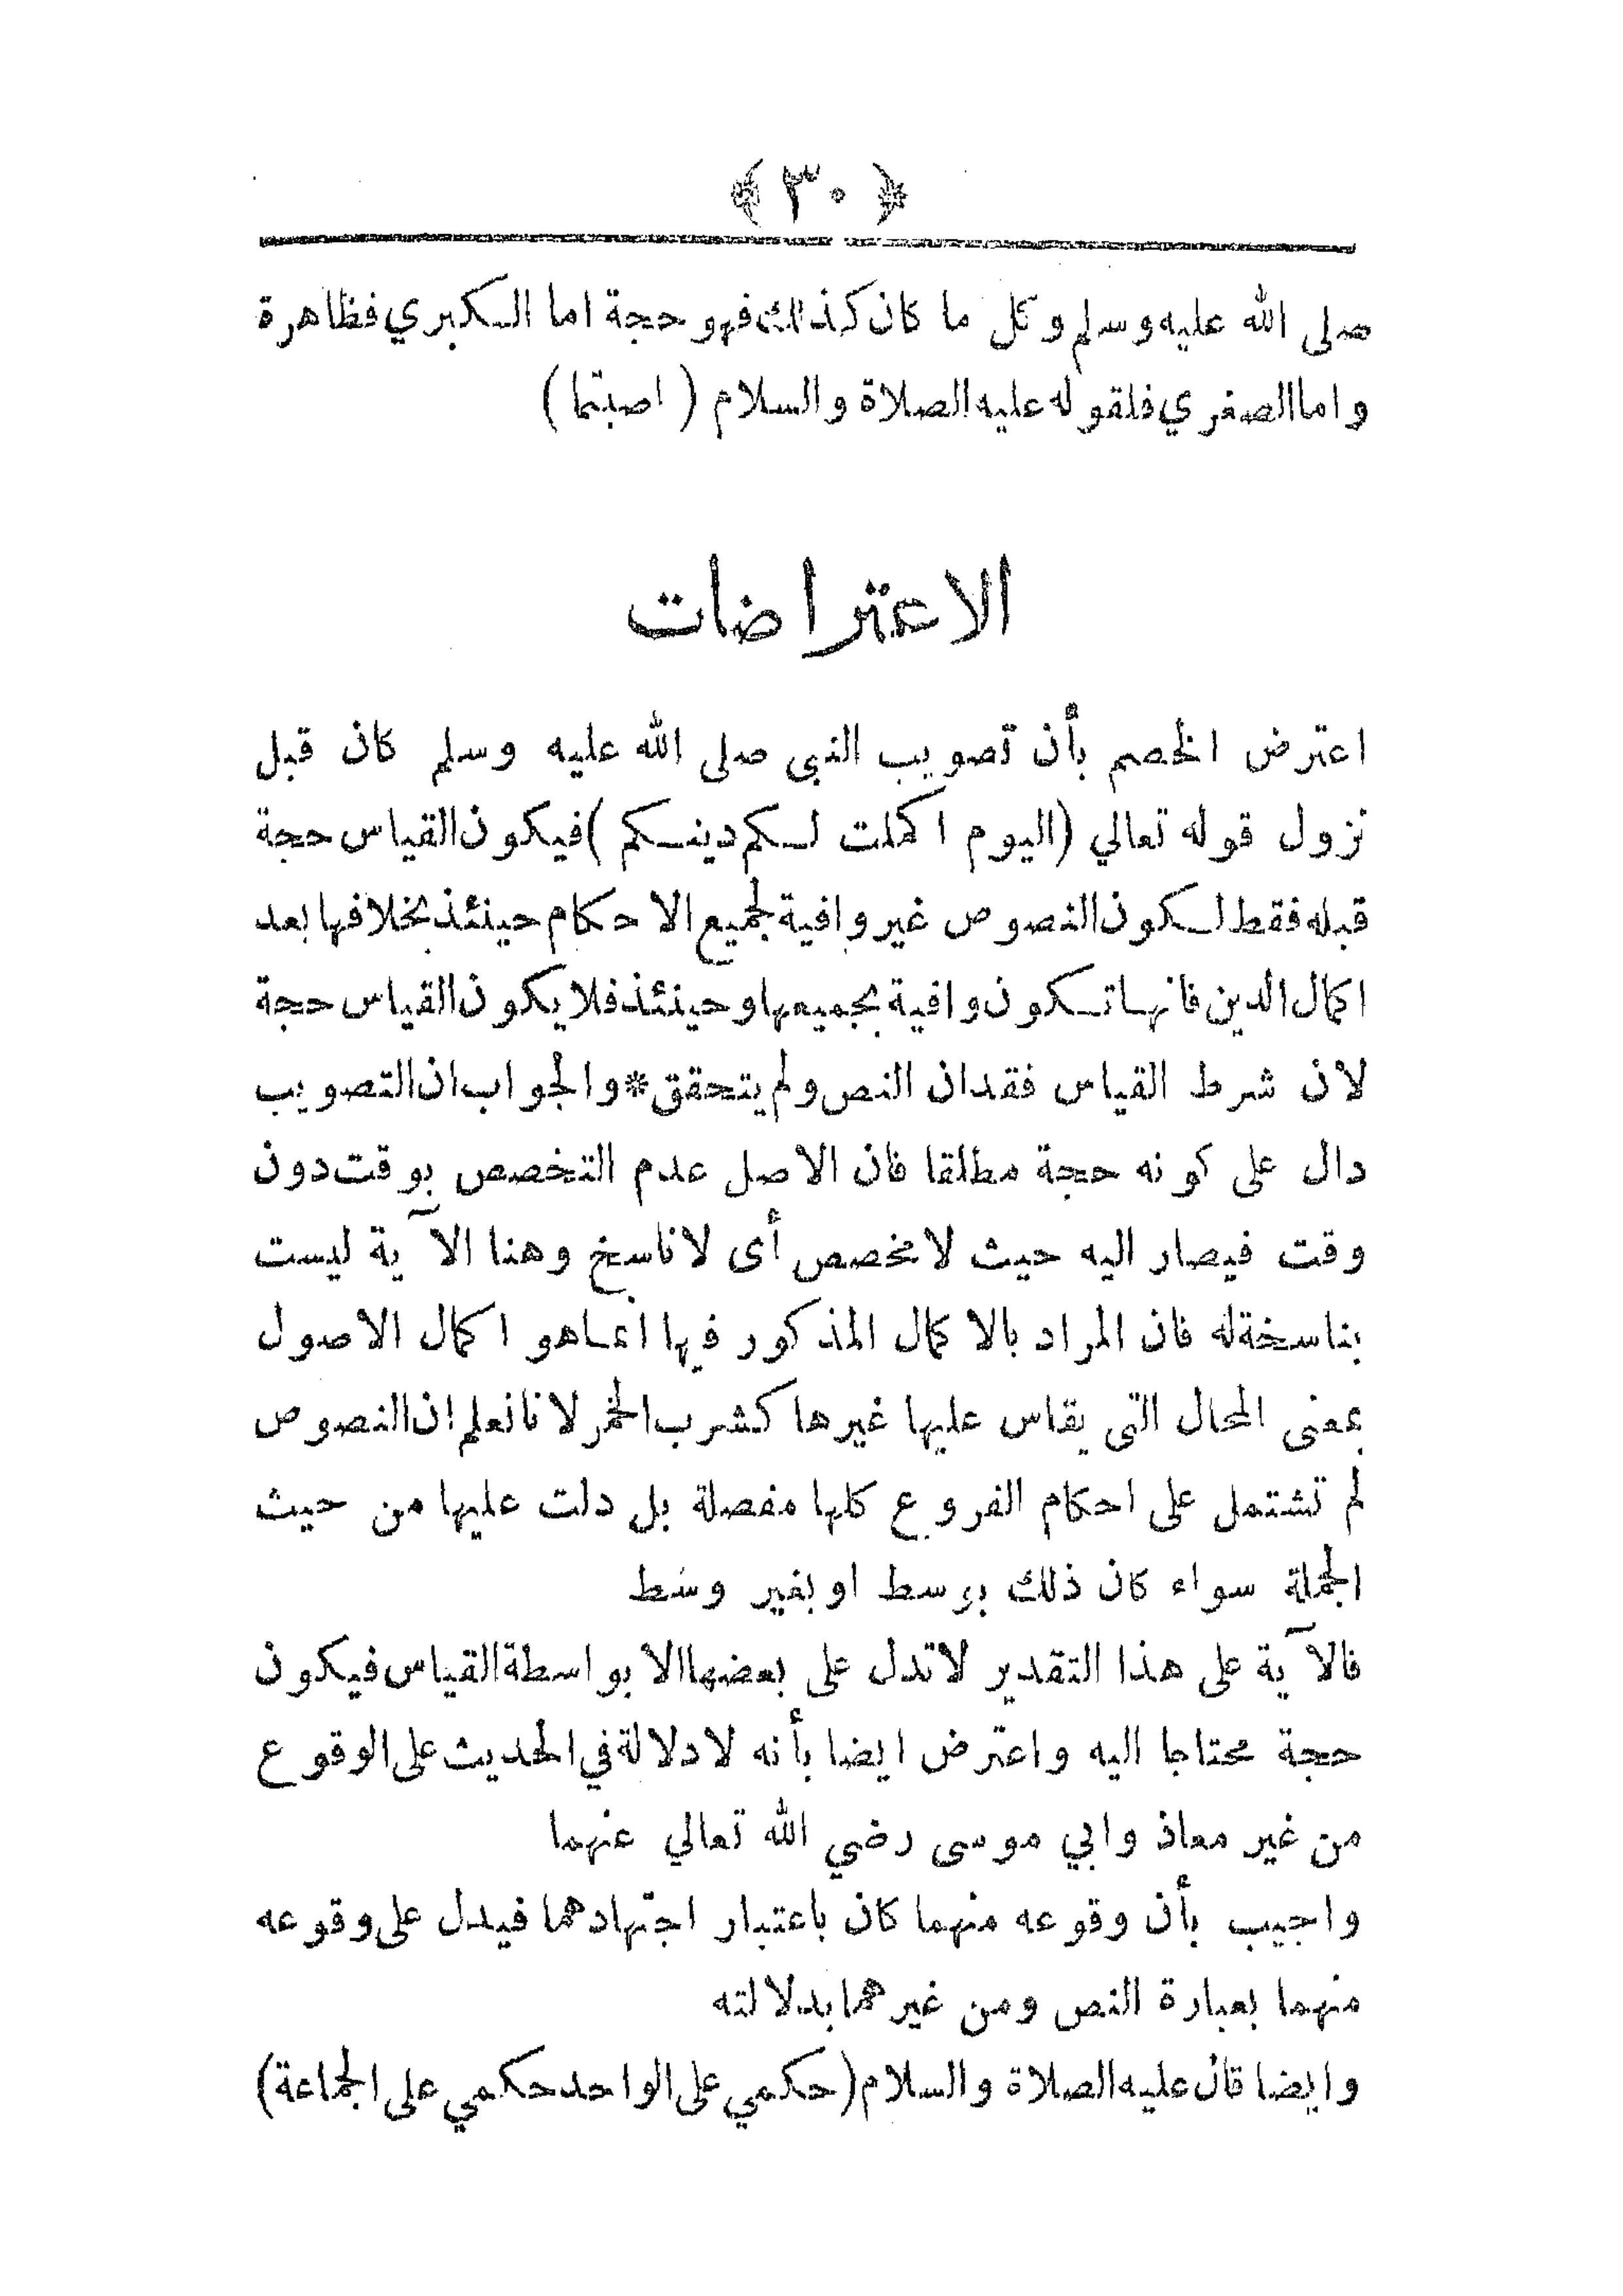 ﴿ ٣٠ ﴾
صلى الله عليه وسلم وكل ما كان كذلك فهو حجة اما الكبري فظاهرة
واما الصغري فلقوله عليه الصلاة والسلام ( اصبتما )
الاعتراضات
اعترض الخصم بأن تصويب النبى صلى الله عليه وسلم كان قبل
نزول قوله تعالي (اليوم اكملت لكم دينكم) فيكون القياس حجة
قبله فقط لكون النصوص غير وافية لجميع الاحكام حينئذ بخلافها بعد
اكمال الدين فانها تكون وافية بجميعها وحينئذ فلا يكون القياس حجة
لان شرط القياس فقدان النص ولم يتحقق * والجواب ان التصويب
دال على كونه حجة مطلقا فان الاصل عدم التخصص بوقت دون
وقت فيصار اليه حيث لا مخصص أى لا ناسخ وهنا الآية ليست
بناسخة له فان المراد بالاكمال المذكور فيها انما هو اكمال الاصول
بمعنى المحال التى يقاس عليها غيرها كشرب الخمر لانا نعلم ان النصوص
لم تشتمل على احكام الفروع كلها مفصلة بل دلت عليها من حيث
الجملة سواء كان ذلك بوسط او بغير وسط
فالآية على هذا التقدير لا تدل على بعضها الا بواسطة القياس فيكون
حجة محتاجا اليه واعترض ايضا بأنه لا دلالة في الحديث على الوقوع
من غير معاذ وابي موسى رضي الله تعالي عنهما
واجيب بأن وقوعه منهما كان باعتبار اجتهادهما فيدل على وقوعه
منهما بعبارة النص ومن غيرهما بدلالته
وايضا قال عليه الصلاة والسلام (حكمي على الواحد حكمي على الجماعة)